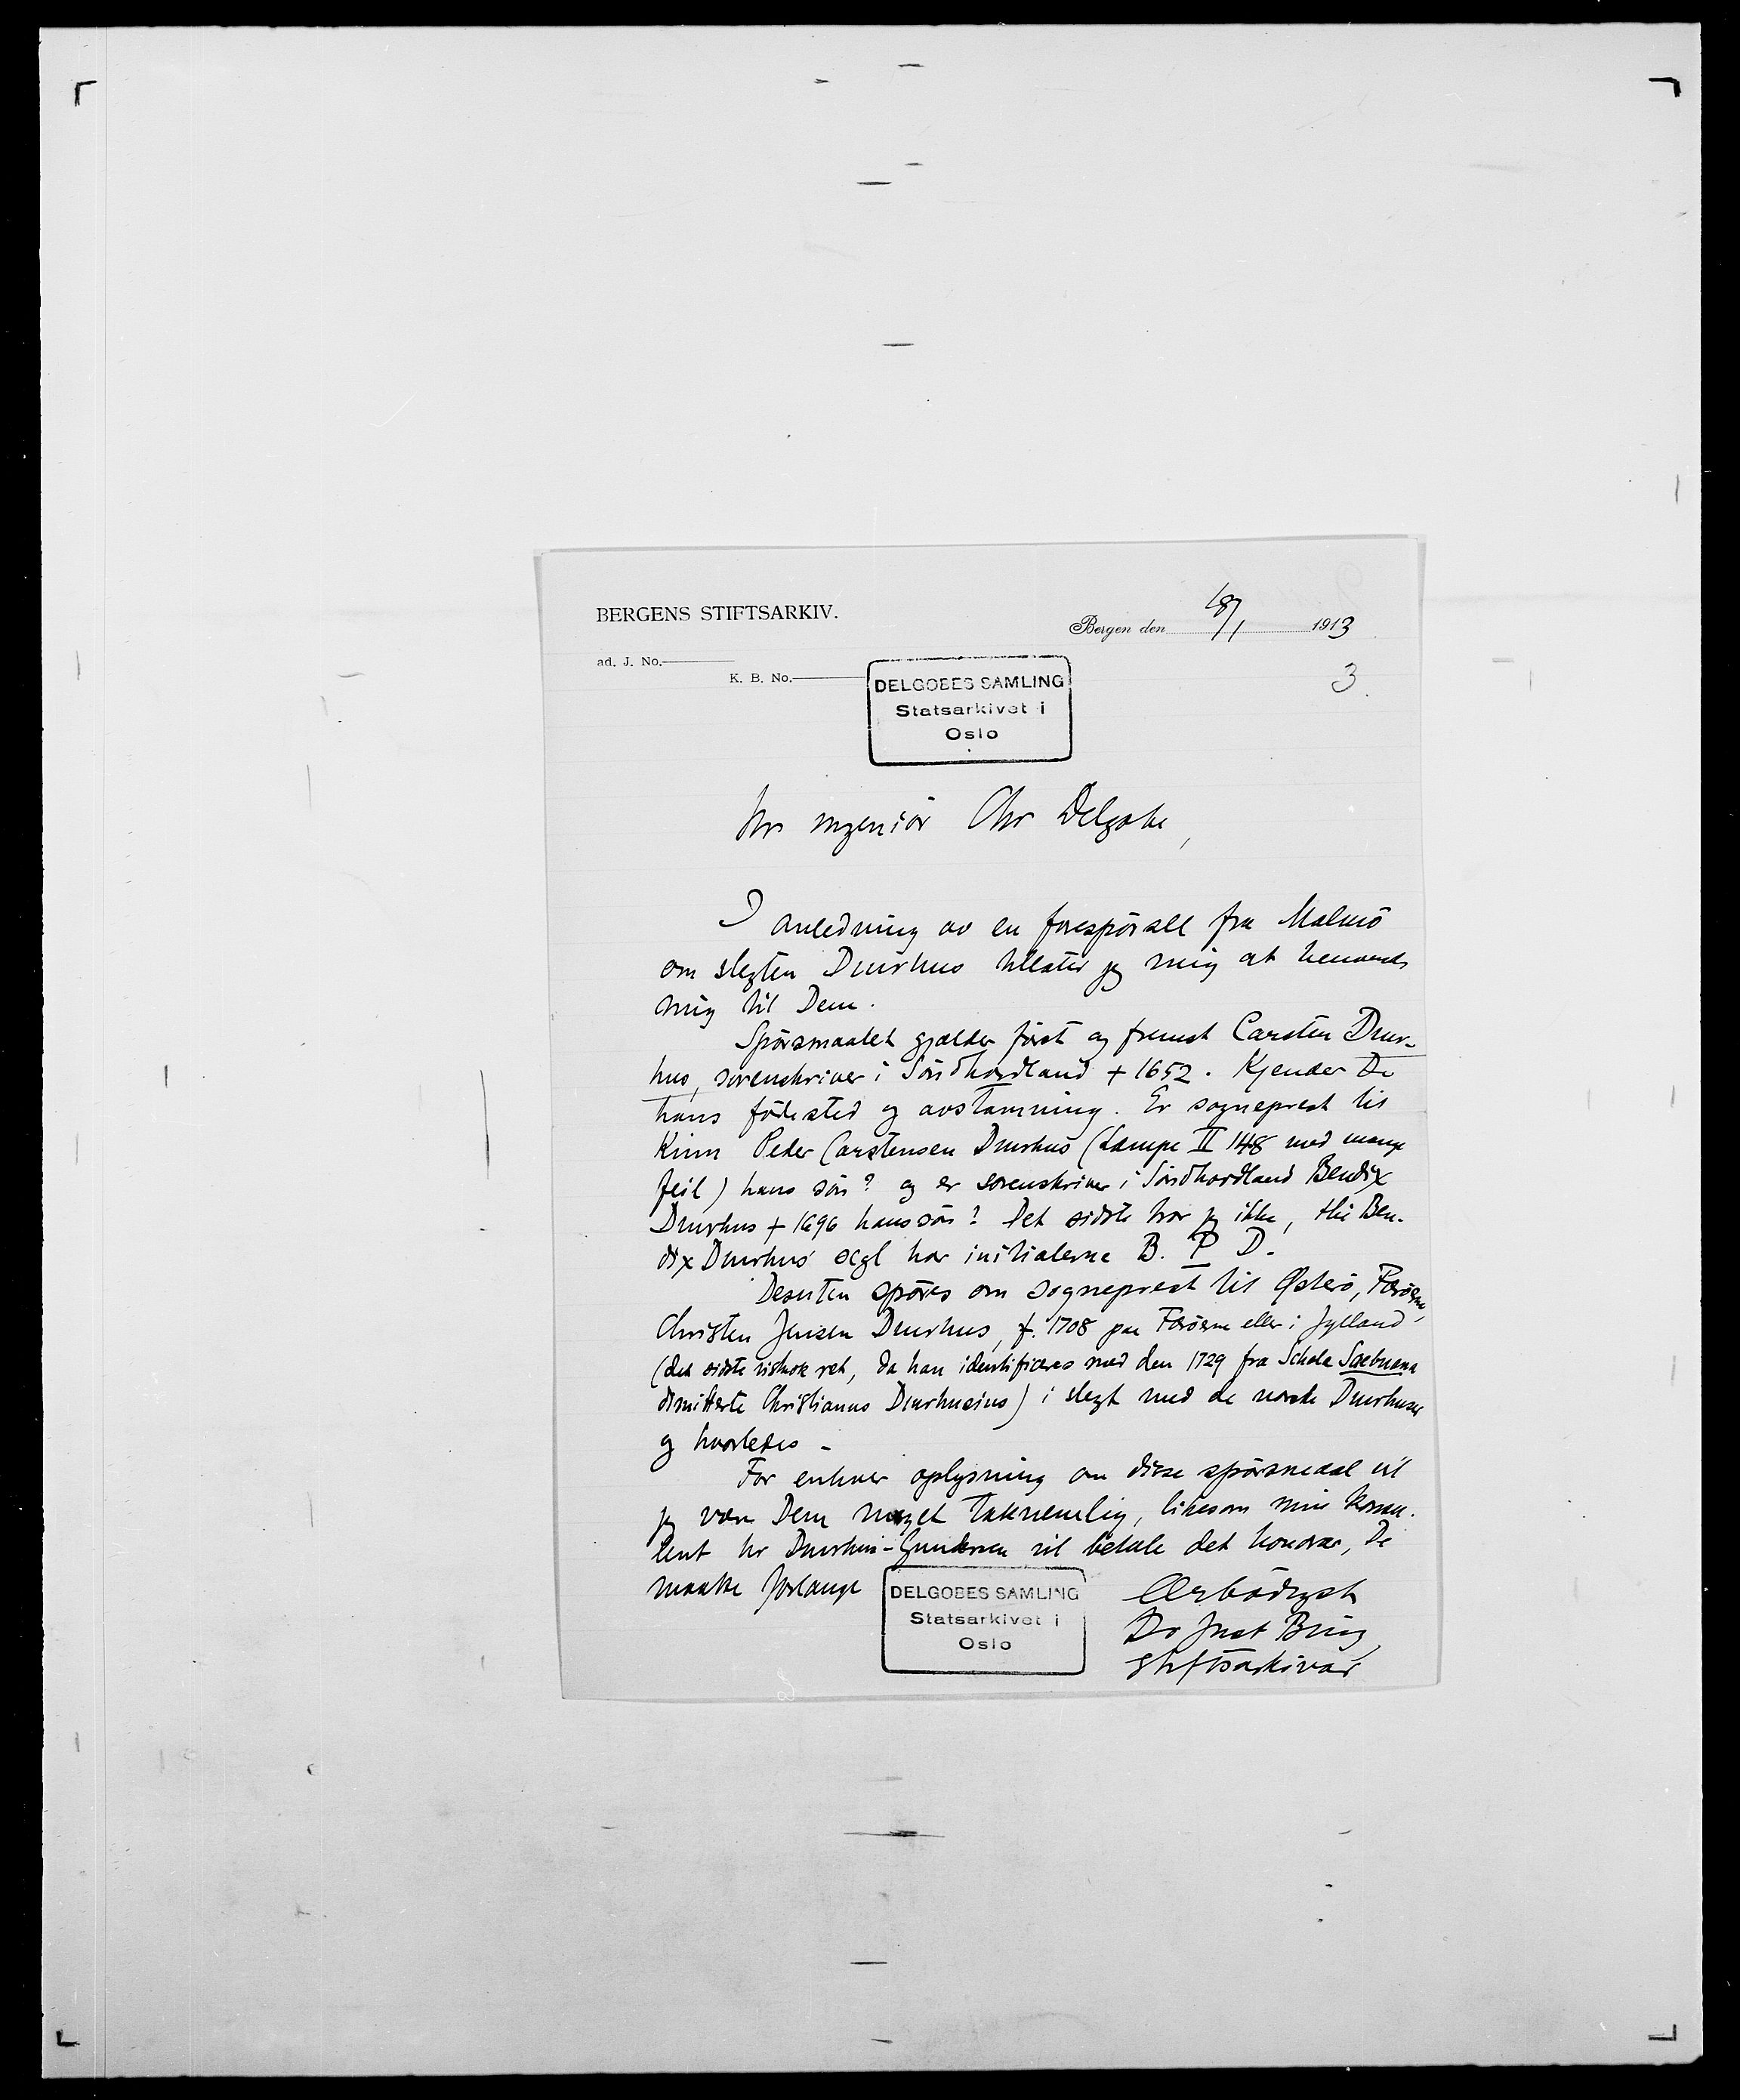 BERGENS STIFTSARKIV.
Bergen den 18/1 1913
ad. J. No.
K. B. No.
3.
DELGOBES SAMLING
Statsarkivet i
Oslo
Hr ingeniör Chr Delgobe,
I anledning av en forespörsel fra Malmö
om slegten Duurhus tillater jeg mig at henvende
mig til Dem.
Spörsmaalet gjælder först og fremst Carsten Duur-
hus, sorenskriver i Söndhordland + 1652. Kjender De
hans födested og avstamning. Er sogneprest til
Kinn Peder Carstensen Duurhus (Lampe II 148 med mange
feil) hans sön? og er sorenskriver i Söndhordland Bendix
Duurhus + 1696 hans sön? Det sidste tror jeg ikke, thi Ben-
dix Duurhus' segl har initialerne B. P D.
Desuten spörs om sogneprest til Østerö, Færöerne,
Christen Jensen Duurhus, f. 1708 paa Færöerne eller i Jylland,
(det sidste nok ret, da han identificeres med den 1729 fra Schola Saebuana
dimitterte Christianus Duurhusius) i slegt med de norske Duurhuser
og hvorledes -
For enhver oplysning om disse spörsmaal vil
jeg være Dem meget taknemelig, likesom min konsu-
lent hr Duurhus-Gundersen vil betale det honorar, De
maatte forlange
DELGOBES SAMLING
Statsarkivet i
Oslo
Ærbödigst
Dr Just Bing,
stiftsarkivar